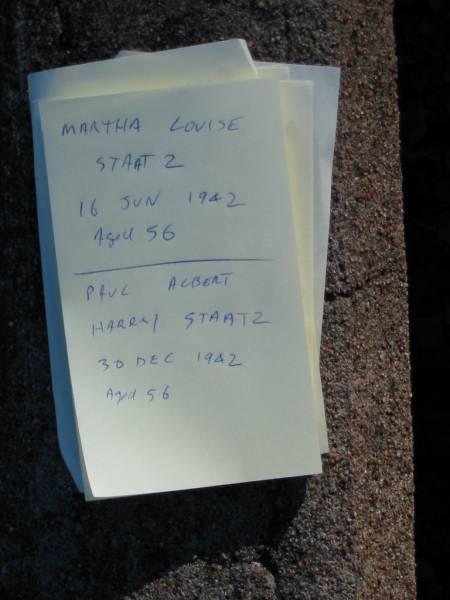 MARTHA LOUISE
STAATZ
16 JUN 1942
Aged 56
PAUL ALBERT
HARRY STAATZ
30 DEC 1942
Aged 56